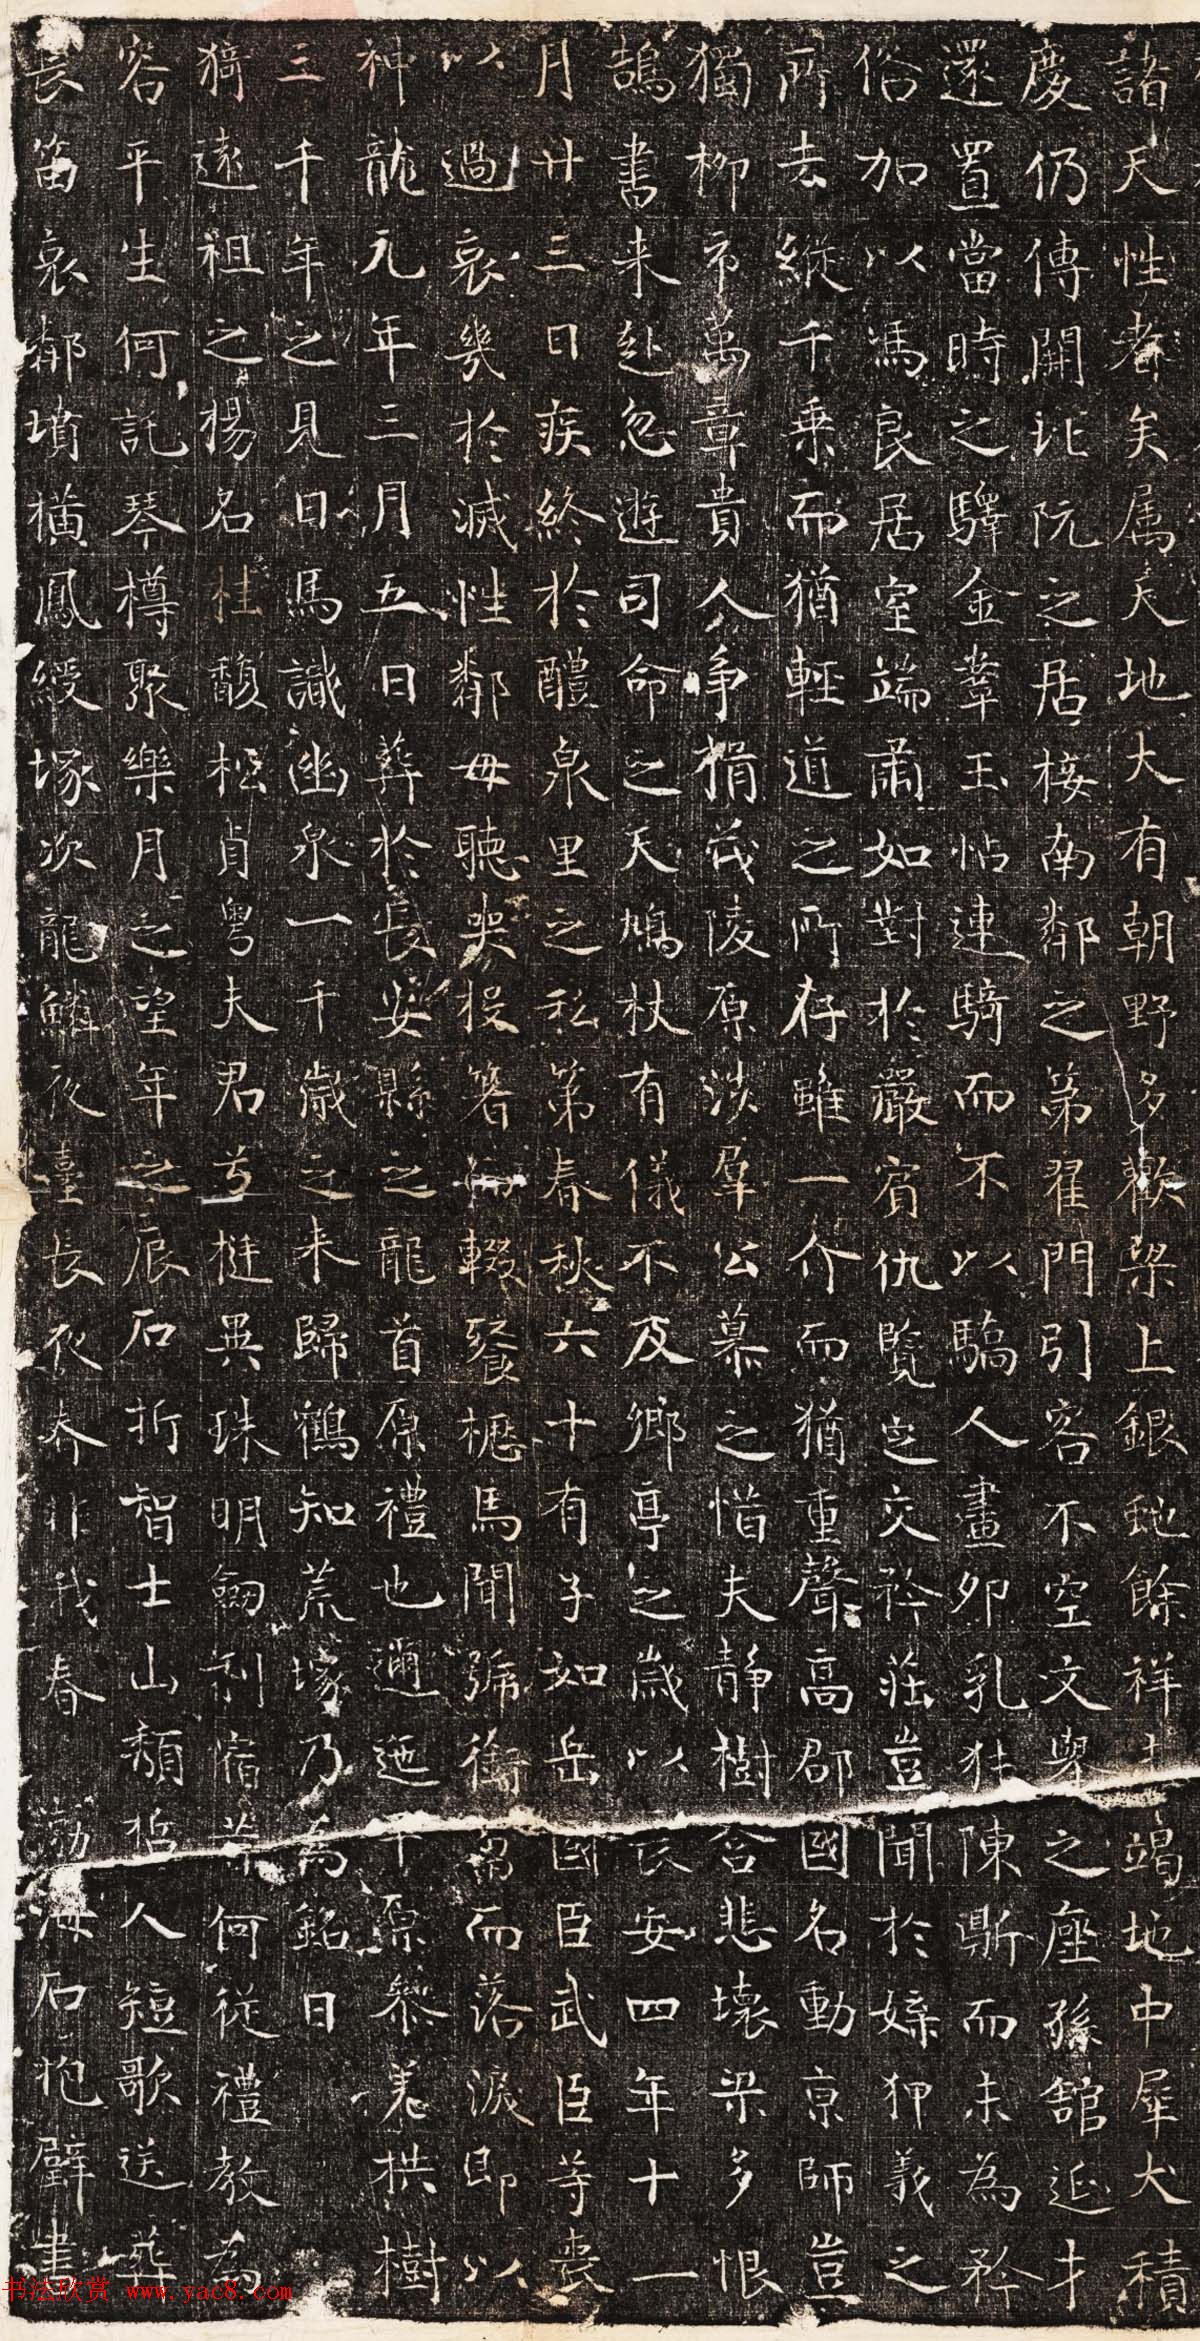 諸天性者矣属天地大有朝野多歡梁上銀虵餘祥土竭地中犀犬積
慶仍傳開北阮之居接南鄰之第翟門引客不空文舉之座孫館延才
還置當時之驛金鞌玉帖連騎而不以驕人畫卯乳狀陳鼎而未為矜
俗加以馮良居室端肅如對於嚴賓仇覽之交矜莊豈聞於媟狎義之
所去縱千乗而猶輕道之所存雖一介而猶重聲高郡國名動京師豈
獨柳市萬章貴人争揖茂陵原涉羣公慕之惜夫静樹含悲壞梁多恨
鵠書来赴忽遊司命之天鳩杖有儀不及鄉亭之歲以長安四年十一
月廿三日疾終於醴泉里之私第春秋六十有子如岳國臣武臣等喪
以過哀幾於滅性鄰母聽哭投箸而輟餐櫪馬聞號銜蒭而落淚即以
神龍元年三月五日葬於長安縣之龍首原禮也邐迤平原參差拱樹
三千年之見日馬識幽泉一千歲之来歸鶴知荒塚乃為銘曰
猗遠祖之楊名桂馥松貞粤夫君兮挺異珠明劒利宿業何從禮教為
容平生何託琴樽聚樂月之望年之辰石折智士山頹哲人短歌送葬
長笛哀鄰墳橫鳳綬塚次龍鱗夜臺長夜春非我春渤海石抱璧書